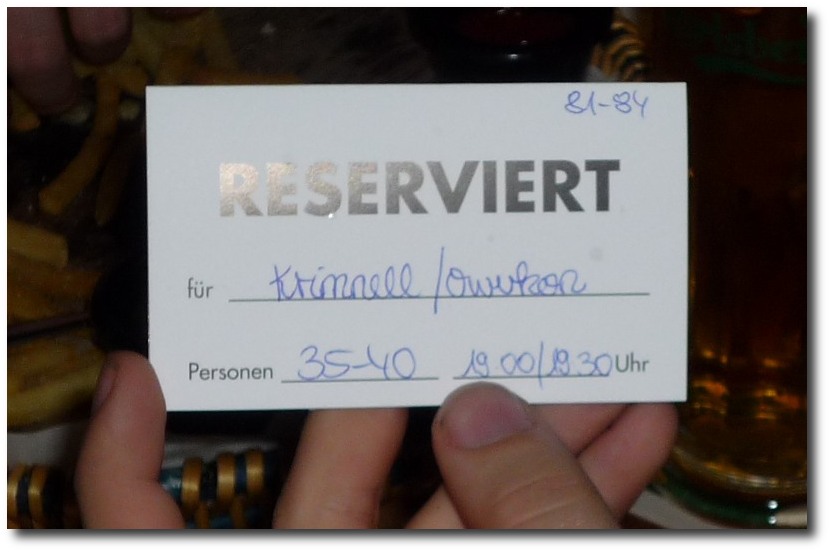 81-84
RESERVIERT
für Krimnell/Owutson
Personen 35-40 19.00/19.30 Uhr